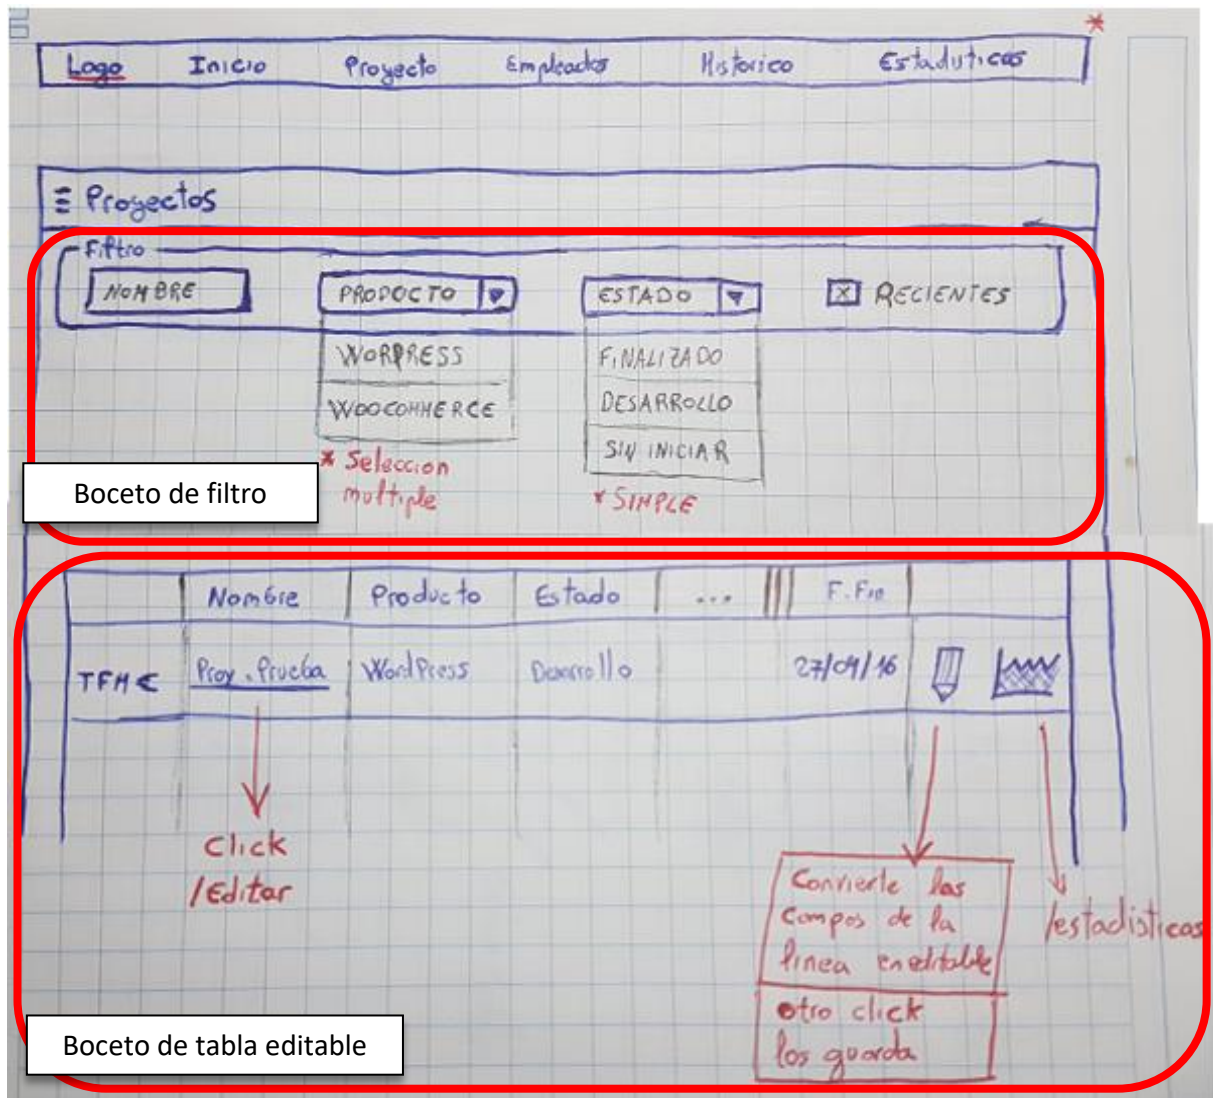 *
Logo Inicio Proyecto Empleados Historico Estadisticas
Proyectos
Filtro
NOMBRE PRODUCTO ESTADO X RECIENTES
WORPRESS FINALIZADO
WOOCOMMERCE DESARROLLO
SIN INICIAR
* Seleccion
multiple
* SIMPLE
Boceto de filtro
Nombre Producto Estado ... F. Fin
TFM€ Proy. Prueba WordPress Desarrollo 27/09/16
Click
/Editar
Convierte los
campos de la
linea en editable
otro click
los guarda
/estadisticas
Boceto de tabla editable